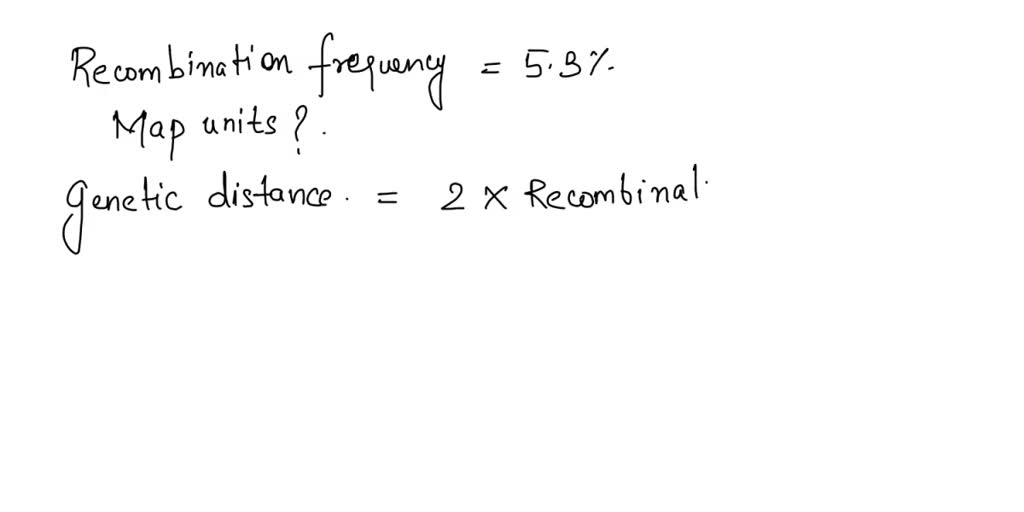 Recombination frequency = 5.3%.
Map units?.
genetic distance. = 2 × Recombinal.